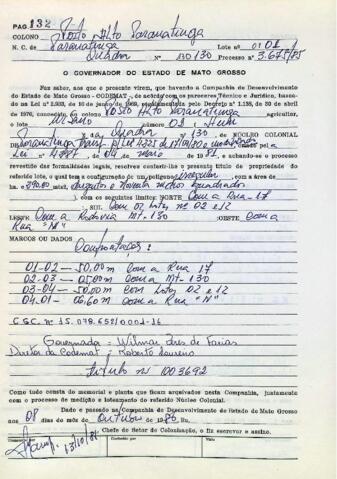 PAG. 132
COLONO Posto Alto Paranatinga Lote nº 01
N. C. de Paranatinga Quadra Nº 130/130 Processo nº 3.675/85
O GOVERNADOR DO ESTADO DE MATO GROSSO
Faz saber, aos que o presente virem, que, havendo a Companhia de Desenvolvimento
do Estado de Mato Grosso - CODEMAT, de acordo com os pareceres Técnico e Jurídico, basea-
dos na Lei nº 2.933, de 10 de junho de 1969, regulamentada pelo Decreto nº 1.138, de 30 de abril
de 1970, concedido ao colono Posto Alto Paranatinga agricultor,
o lote Urbano número 01
Quadra nº 130, DE NÚCLEO COLONIAL
Lei nº 4087 de 04 de maio de , e achando-se o processo
revestido das formalidades legais, resolve conferir-lhe o presente título de propriedade do
referido lote, o qual tem a configuração de um polígono irregular com a área de
ha. Duzentos e Noventa metros quadrados
), com os seguintes limites: NORTE Com a Rua - 17
SUL Com os Lotes nº 02 e 12
LESTE Com a Rodovia MT-130 OESTE Com a
Rua "N"
MARCOS OU DADOS
Confrontações:
01-02 - 50,00m com a Rua 17
02-03 - 05,00m com a MT-130
03-04 - 50,00m com Lotes 02 e 12
04-01 - 06,60m com a Rua "N"
C.G.C. nº 15.078.652/0001-16
Governador = Wilmar Peres de Farias
Diretor da Codemat = Roberto Loureno
Título nº 003692
Como tudo consta do memorial e planta que ficam arquivados nesta Companhia, juntamente
com o processo de medição e loteamento do referido Núcleo Colonial.
Dado e passado na Companhia de Desenvolvimento do Estado de Mato Grosso
aos 08 dias do mês de Outubro de 1986 Eu,
Chefe do Setor de Colonização, o fiz escrever e assino.
Conferido por
13/10/86